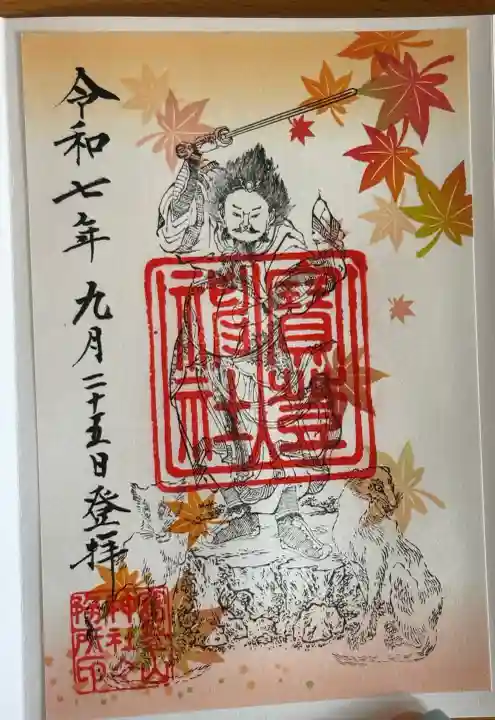 寳登山
神社
令和七年九月二十五日登拝
寳登山
神社社
務所印